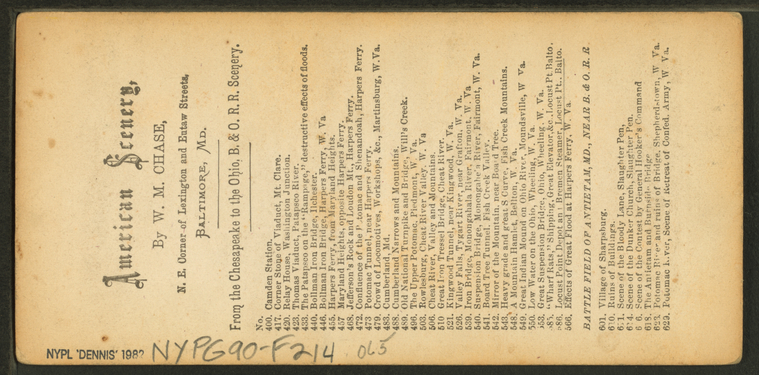 American Scenery,
By W. M. CHASE,
N. E. Corner of Lexington and Eutaw Streets,
BALTIMORE, MD.
From the Chesapeake to the Ohio, B. & O. R. R. Scenery.
No.
400. Camden Station.
417. Corner Stone of Viaduct, Mt. Clare.
420. Relay House, Washington Junction.
423. Thomas Viaduct, Patapsco River.
433. The Patapsco on the "Rampage," destructive effects of floods.
440. Bollman Iron Bridge, Ilchester.
446. Bollman Iron Bridge, Harpers Ferry, W. Va
455. Harpers Ferry, from Maryland Heights.
457 Maryland Heights, opposite Harpers Ferry.
468. Jefferson's Rock and Loudon Mt., Harpers Ferry.
472. Confluence of the Potomac and Shenandoah, Harpers Ferry.
473 Potomac Tunnel, near Harpers Ferry.
479. Crowd of Locomotives, Workshops, &c., Martinsburg, W. Va.
483. Cumberland, Md.
488. Cumberland Narrows and Mountains.
489. Old National Turnpike and Bridge, Will's Creek.
496. The Upper Potomac, Piedmont, W. Va.
503. Rowlesburg, Cheat River Valley, W. Va
506. Cheat River, Valley and Mountains.
510 Great Iron Tressel Bridge, Cheat River.
521. Kingwood Tunnel, near Kingwood, W. Va.
526. Valley Falls, Tygart River, near Grafton, W. Va.
539. Iron Bridge, Monongahala River, Fairmount, W. Va.
540. Suspension Bridge, Monongahala River, Fairmont, W. Va.
541. Board Tree Tunnel, Fish Creek Valley.
542. Mirror of the Mountain, near Board Tree.
543. Heavy grade and great S Curve, Fish Creek Mountains.
548. A Mountain Hamlet, Belton, W. Va.
549. Great Indian Mound on Ohio River, Moundsville, W Va
550. Low Water on the Ohio, Wheeling, W. Va.
553. Great Suspension Bridge, Ohio, Wheeling, W. Va.
585. "Wharf Rats," Shipping, Great Elevator, &c., Locust Pt. Balto.
586. Locust Point, Depot and Bremen Steamer, Locust Pt., Balto.
566. Effects of Great Flood at Harpers Ferry, W. Va.
BATTLE FIELD OF ANTIETAM, MD., NEAR B. & O. R. R.
601. Village of Sharpsburg.
610. Ruins of Buildings.
Scene of the Bloody Lane, Slaughter Pen.
Scene of the Dunker Church, Slaughter Pen.
Scene of the Contest by General Hooker's Command
618. The Antietam and Burnside Bridge.
Potomac River and ruins of Bridge, Shepherdstown, W Va.
629. Potomac River, Scene of Retreat of Confed. Army, W Va.
NYPL 'DENNIS' 1982 NYPG90-F214 065